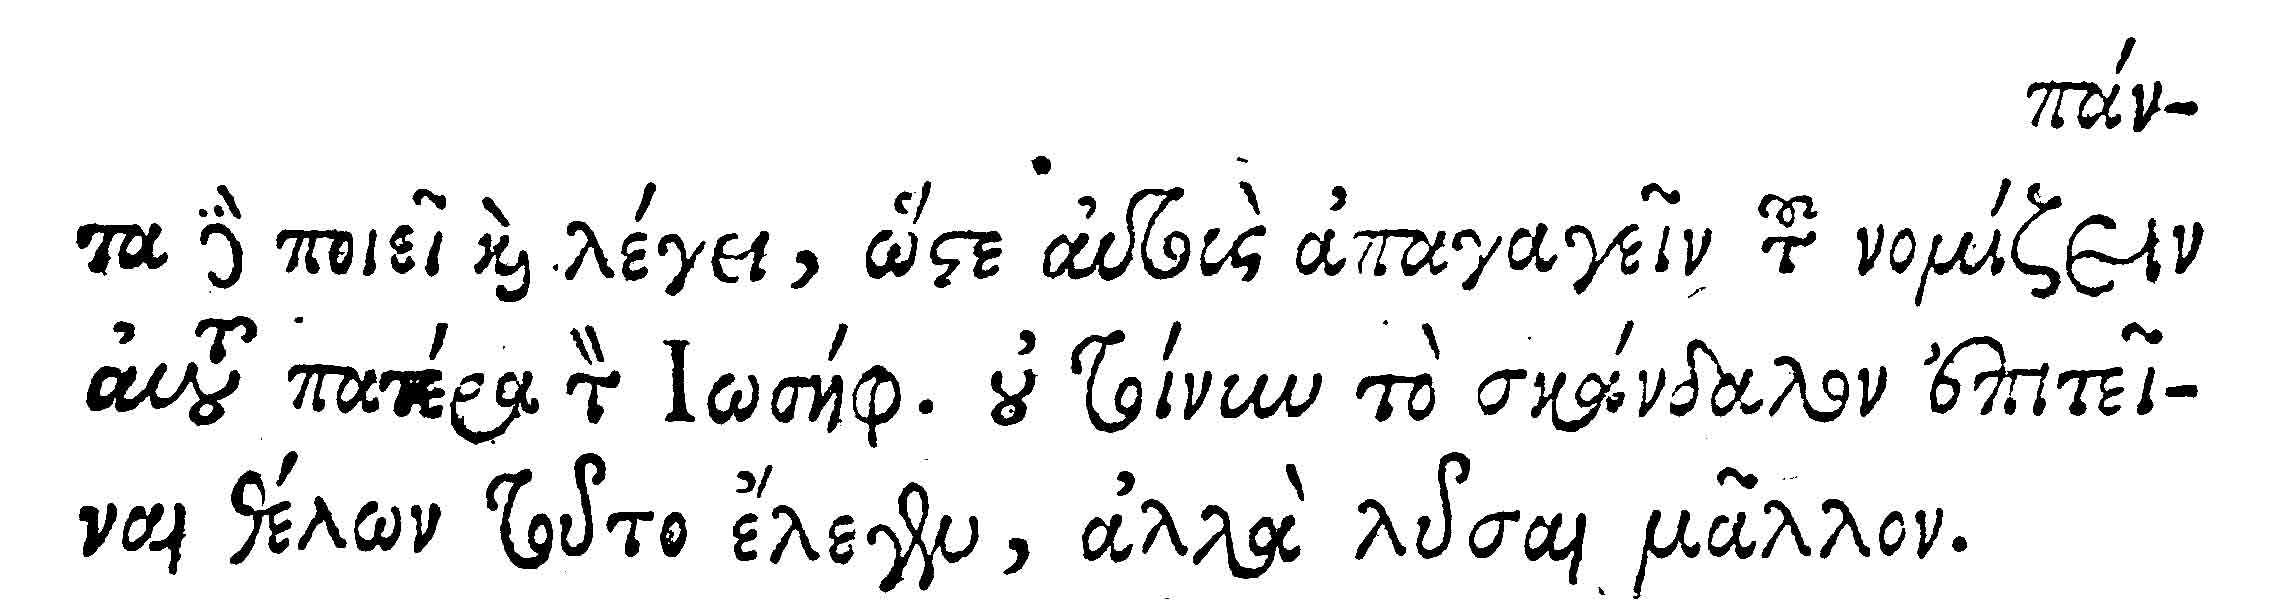 πάν-
τα γὰρ ποιεῖ καὶ λέγει, ὥστε αὐτοὺς ἀπαγαγεῖν τοῦ νομίζειν
αὐτοῦ πατέρα τὸν Ἰωσήφ. οὐ τοίνυν τὸ σκάνδαλον ἐπιτεῖ-
ναι θέλων τοῦτο ἔλεγεν, ἀλλὰ λῦσαι μᾶλλον.